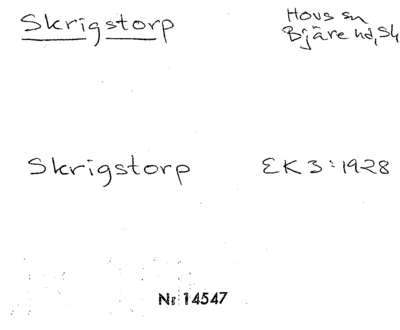 Skrigstorp
Hovs sn
Bjäre hd, Sk
Skrigstorp
EK 3:1928
Nr 14547